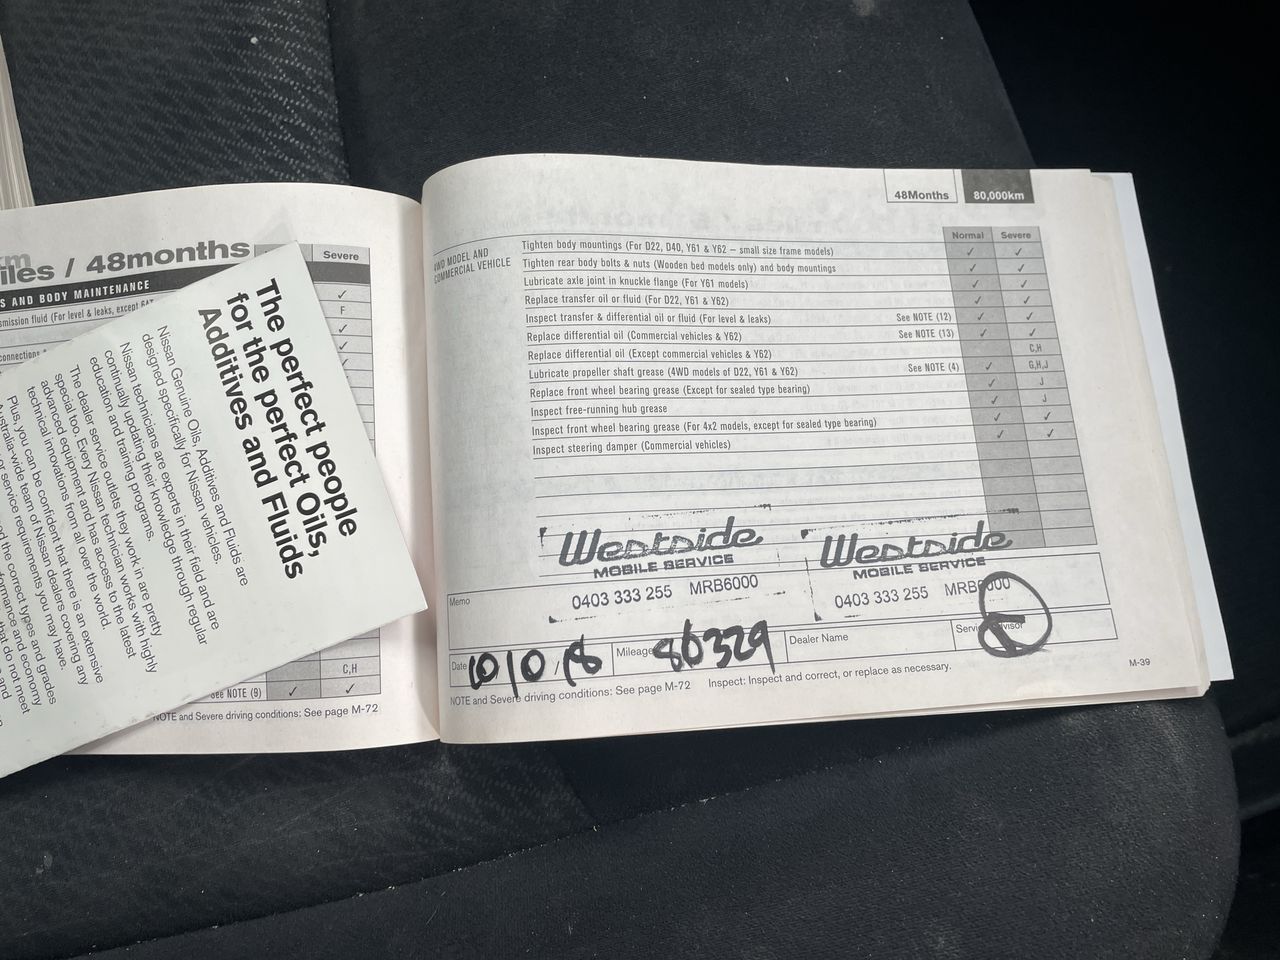 km
iles / 48months
Severe
S AND BODY MAINTENANCE
smission fluid (For level & leaks, except
F
connections
The perfect people
for the perfect Oils,
Additives and Fluids
Nissan Genuine Oils, Additives and Fluids are
designed specifically for Nissan vehicles.
Nissan technicians are experts in their field and are
continually updating their knowledge through regular
education and training programs.
The dealer service outlets they work in are pretty
special too. Every Nissan technician works with highly
advanced equipment and has access to the latest
technical innovations from all over the world.
Plus, you can be confident that there is an extensive
Australia-wide team of Nissan dealers covering any
or service requirements you may have.
the correct types and grades
formance and economy
that do not meet
and
C,H
See NOTE (9) ✓ ✓
NOTE and Severe driving conditions: See page M-72
48Months 80,000km
Normal Severe
4WD MODEL AND
COMMERCIAL VEHICLE
Tighten body mountings (For D22, D40, Y61 & Y62 – small size frame models) ✓ ✓
Tighten rear body bolts & nuts (Wooden bed models only) and body mountings ✓ ✓
Lubricate axle joint in knuckle flange (For Y61 models) ✓ ✓
Replace transfer oil or fluid (For D22, Y61 & Y62) ✓ ✓
Inspect transfer & differential oil or fluid (For level & leaks) See NOTE (12) ✓ ✓
Replace differential oil (Commercial vehicles & Y62) See NOTE (13) ✓ ✓
Replace differential oil (Except commercial vehicles & Y62) C,H
Lubricate propeller shaft grease (4WD models of D22, Y61 & Y62) See NOTE (4) ✓ G,H,J
Replace front wheel bearing grease (Except for sealed type bearing) ✓ J
Inspect free-running hub grease ✓ J
Inspect front wheel bearing grease (For 4x2 models, except for sealed type bearing) ✓ ✓
Inspect steering damper (Commercial vehicles) ✓ ✓
Westside
MOBILE SERVICE
0403 333 255 MRB6000
Westside
MOBILE SERVICE
0403 333 255 MRB6000
Memo
Date 10/10/18 Mileage 86329 Dealer Name Service Advisor
NOTE and Severe driving conditions: See page M-72 Inspect: Inspect and correct, or replace as necessary. M-39